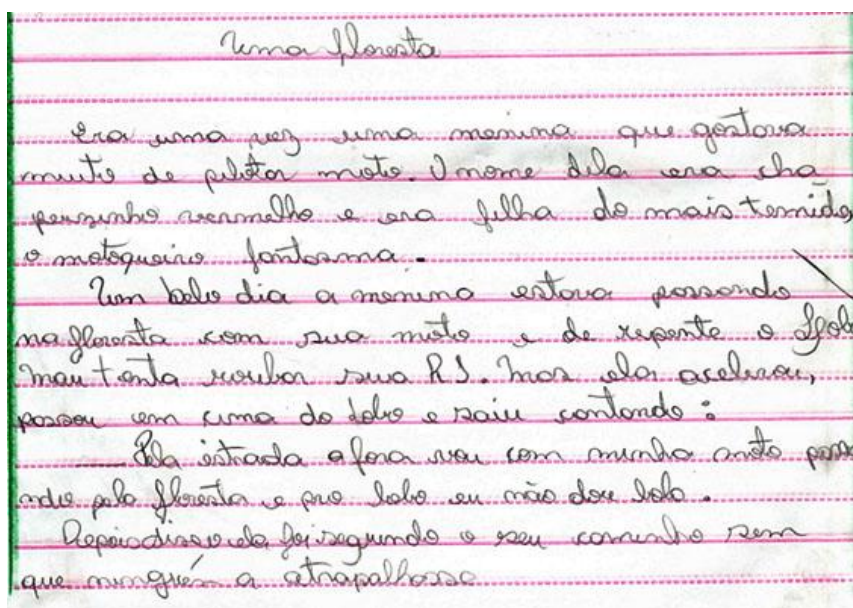 Uma floresta
Era uma vez uma menina que gostava
muito de pilotar moto. O nome dela era cha
peuzinho vermelho e era filha do mais temido,
o motoqueiro fantasma.
Um belo dia a menina estava passando
na floresta com sua moto e de repente o lobo
mau tenta roubar sua R1. Mas ela acelerou,
passou em cima do lobo e saiu cantando:
Pela estrada a fora vou com minha moto pass
ando pela floresta e pro lobo eu não dou bolo.
Depois disso ela foi seguindo o seu caminho sem
que ninguém a atrapalhasse